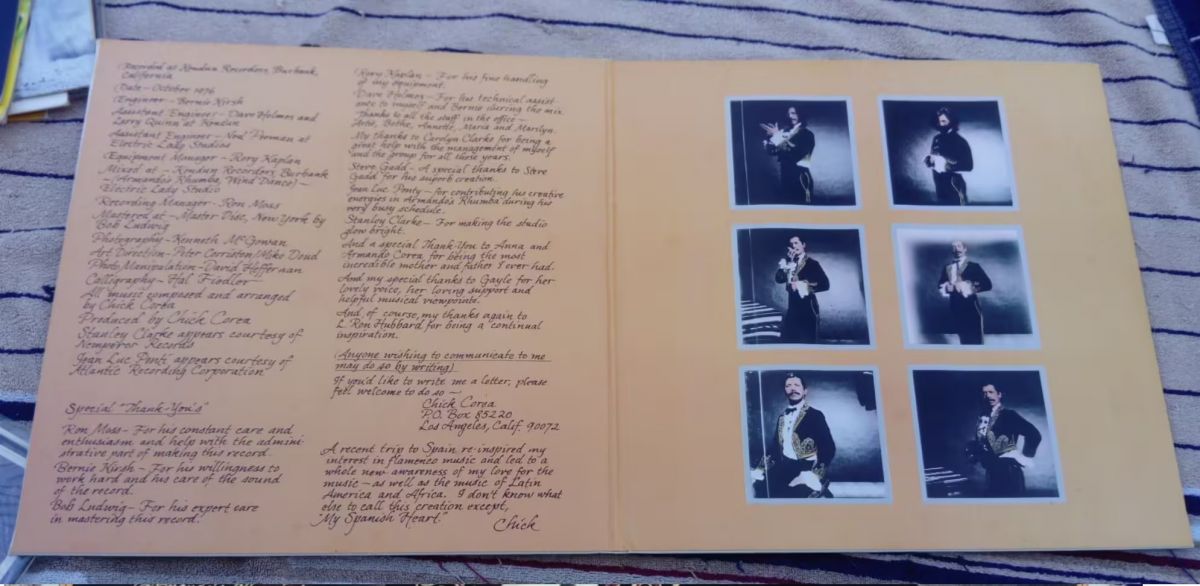 Recorded at Kendun Recorders, Burbank,
California
Date – October 1976
Engineer – Bernie Kirsh
Assistant Engineer – Dave Holmes and
Larry Quinn at Kendun
Assistant Engineer – Ned Perman at
Electric Lady Studios
Equipment Manager – Rory Kaplan
Mixed at – Kendun Recorders, Burbank
– Armando's Rhumba, Wind Dance) –
Electric Lady Studio
Recording Manager – Ron Moss
Mastered at – Master Disc, New York by
Bob Ludwig
Photography – Kenneth McGowan
Art Direction – Peter Corriston/Mike Doud
Photo Manipulation – David Heffernan
Calligraphy – Hal Fiedler
All music composed and arranged
by Chick Corea
Produced by Chick Corea
Stanley Clarke appears courtesy of
Nemperor Records
Jean Luc Ponti appears courtesy of
Atlantic Recording Corporation
Special "Thank-You's"
Ron Moss – For his constant care and
enthusiasm and help with the admini-
strative part of making this record.
Bernie Kirsh – For his willingness to
work hard and his care of the sound
of the record.
Bob Ludwig – For his expert care
in mastering this record.
Rory Kaplan – For his fine handling
of my equipment.
Dave Holmes – For his technical assist-
ance to myself and Bernie during the mix.
Thanks to all the staff in the office –
Bethe, Annette, Maria and Marilyn.
My thanks to Carolyn Clarke for being a
great help with the management of myself
and the group for all these years.
Steve Gadd – A special thanks to Steve
Gadd for his superb creation.
Jean Luc Ponty – for contributing his creative
energies in Armando's Rhumba during his
very busy schedule.
Stanley Clarke – For making the studio
glow bright.
And a special Thank-You to Anna and
Armando Corea for being the most
incredible mother and father I ever had.
And my special thanks to Gayle for her
lovely voice, her loving support and
helpful musical viewpoints.
And of course, my thanks again to
L. Ron Hubbard for being a continual
inspiration.
(Anyone wishing to communicate to me
may do so by writing)
If you'd like to write me a letter, please
feel welcome to do so –
Chick Corea
P.O. Box 85220
Los Angeles, Calif. 90072
A recent trip to Spain re-inspired my
interest in flamenco music and led to a
whole new awareness of my love for the
music – as well as the music of Latin
America and Africa. I don't know what
else to call this creation except,
"My Spanish Heart."
Chick